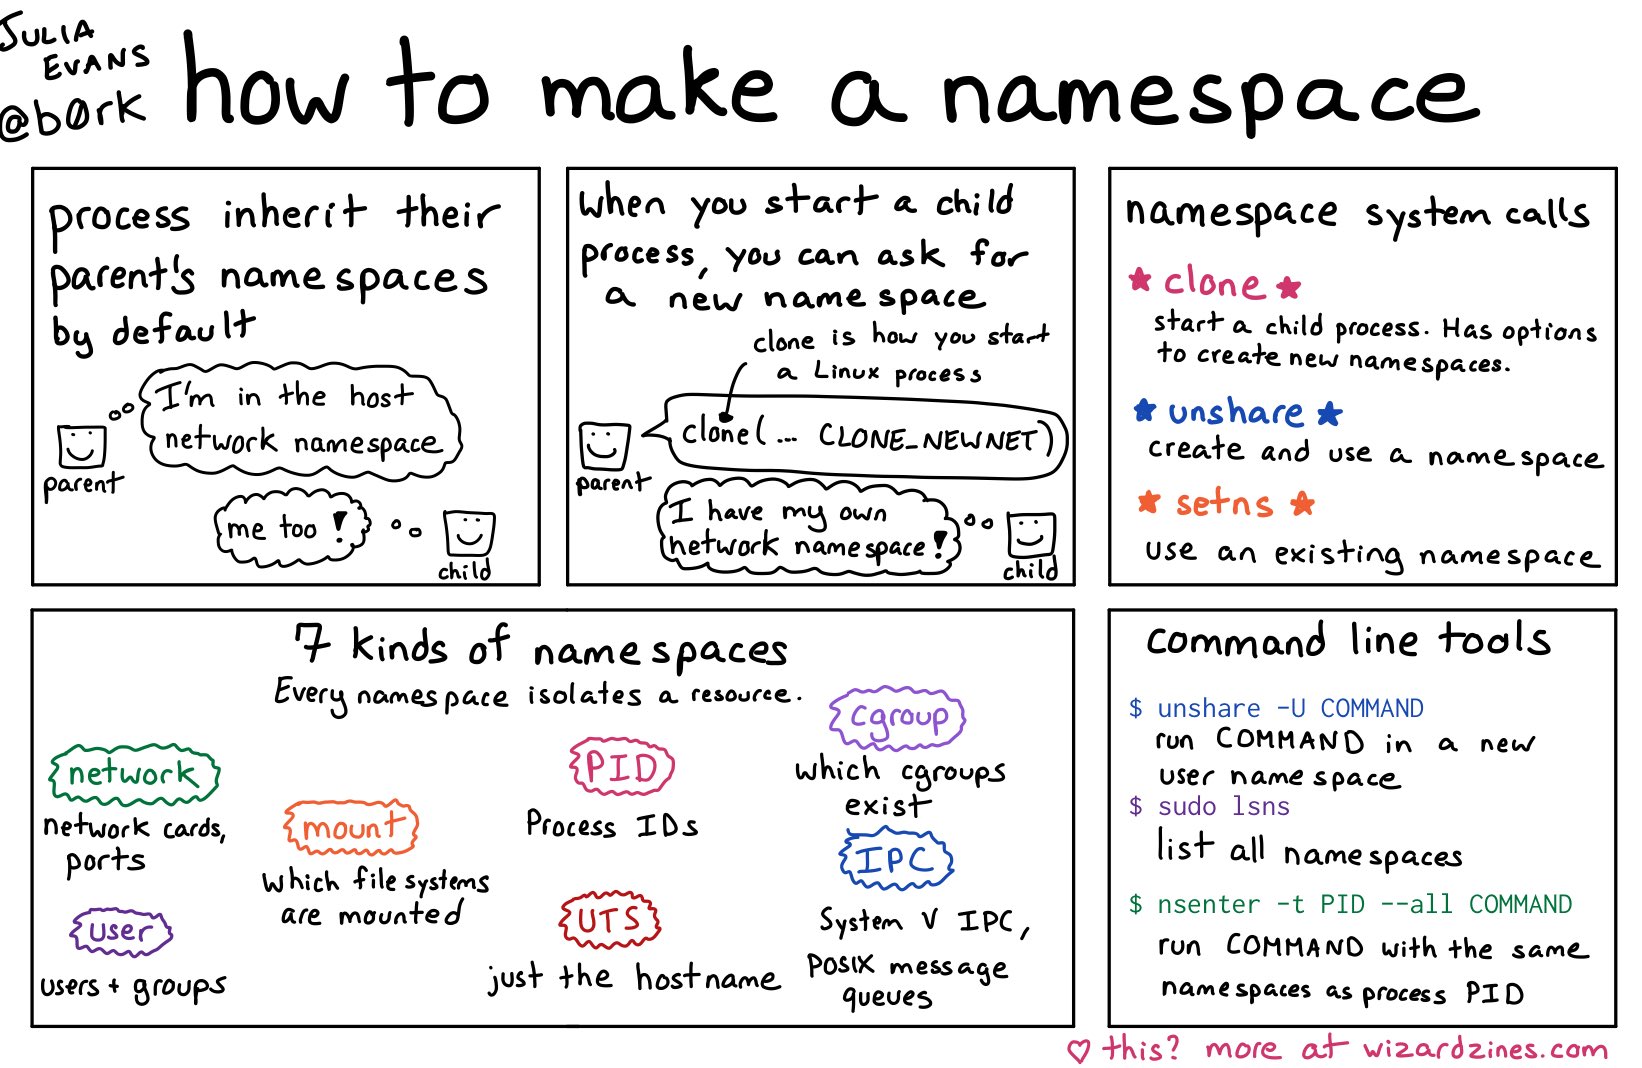 JULIA
EVANS
@b0rk
how to make a namespace
process inherit their
parent's namespaces
by default
I'm in the host
network namespace
parent
me too!
child
when you start a child
process, you can ask for
a new namespace
clone is how you start
a Linux process
clone(... CLONE_NEWNET)
parent
I have my own
network namespace!
child
namespace system calls
★ clone ★
start a child process. Has options
to create new namespaces.
★ unshare ★
create and use a namespace
★ setns ★
use an existing namespace
7 kinds of namespaces
Every namespace isolates a resource.
network
network cards,
ports
user
users + groups
mount
which file systems
are mounted
PID
Process IDs
UTS
just the hostname
cgroup
which cgroups
exist
IPC
System V IPC,
POSIX message
queues
command line tools
$ unshare -U COMMAND
run COMMAND in a new
user namespace
$ sudo lsns
list all namespaces
$ nsenter -t PID --all COMMAND
run COMMAND with the same
namespaces as process PID
♡ this? more at wizardzines.com